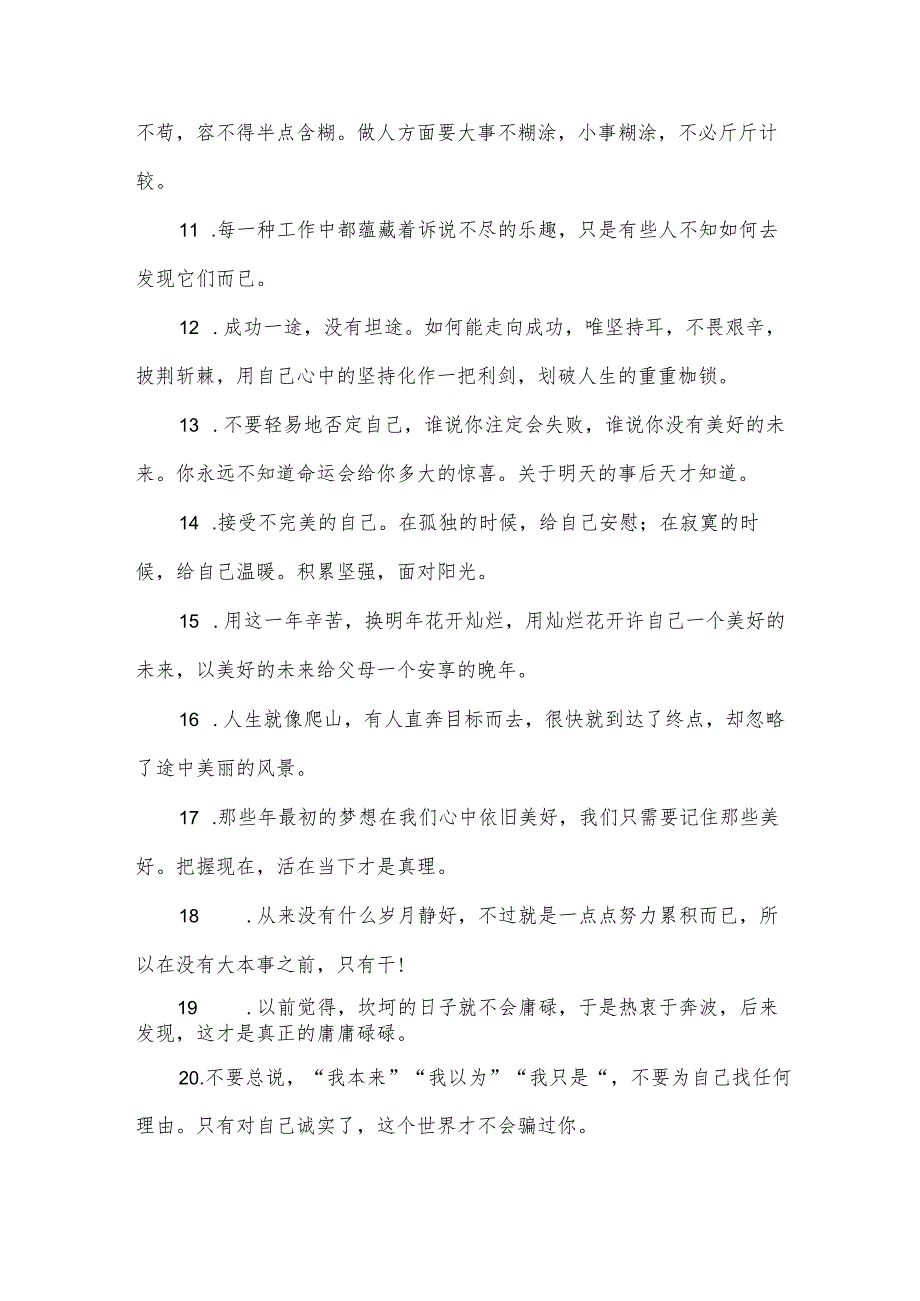 不苟，容不得半点含糊。做人方面要大事不糊涂，小事糊涂，不必斤斤计
较。
11 .每一种工作中都蕴藏着诉说不尽的乐趣，只是有些人不知如何去
发现它们而已。
12 .成功一途，没有坦途。如何能走向成功，唯坚持耳，不畏艰辛，
披荆斩棘，用自己心中的坚持化作一把利剑，划破人生的重重枷锁。
13 .不要轻易地否定自己，谁说你注定会失败，谁说你没有美好的未
来。你永远不知道命运会给你多大的惊喜。关于明天的事后天才知道。
14 .接受不完美的自己。在孤独的时候，给自己安慰；在寂寞的时
候，给自己温暖。积累坚强，面对阳光。
15 .用这一年辛苦，换明年花开灿烂，用灿烂花开许自己一个美好的
未来，以美好的未来给父母一个安享的晚年。
16 .人生就像爬山，有人直奔目标而去，很快就到达了终点，却忽略
了途中美丽的风景。
17 .那些年最初的梦想在我们心中依旧美好，我们只需要记住那些美
好。把握现在，活在当下才是真理。
18 .从来没有什么岁月静好，不过就是一点点努力累积而已，所
以在没有大本事之前，只有干!
19 .以前觉得，坎坷的日子就不会庸碌，于是热衷于奔波，后来
发现，这才是真正的庸庸碌碌。
20.不要总说，“我本来”“我以为”“我只是“，不要为自己找任何
理由。只有对自己诚实了，这个世界才不会骗过你。